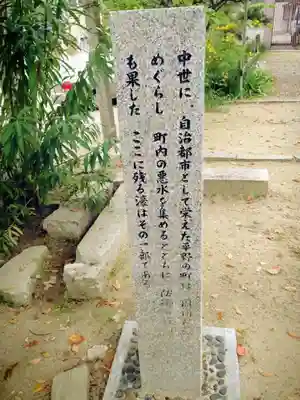 中世に 自治都市として栄えた平野の町は 周囲に
めぐらし 町内の悪水を集めるとともに
も果した ここに残る濠はその一部である